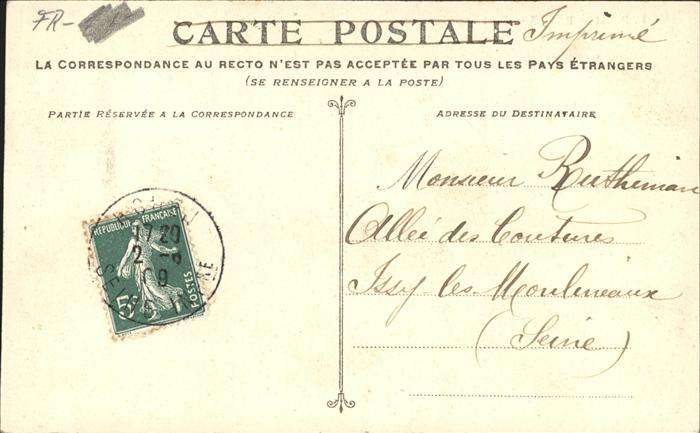 FR-
CARTE POSTALE Imprimé
LA CORRESPONDANCE AU RECTO N'EST PAS ACCEPTÉE PAR TOUS LES PAYS ÉTRANGERS
(SE RENSEIGNER A LA POSTE)
PARTIE RÉSERVÉE A LA CORRESPONDANCE
ADRESSE DU DESTINATAIRE
Monsieur
Allée des Coutures
Issy les Moulineaux
(Seine)
REPUBLIQUE FRANÇAISE
17 20
2 - 6
09
5c
POSTES